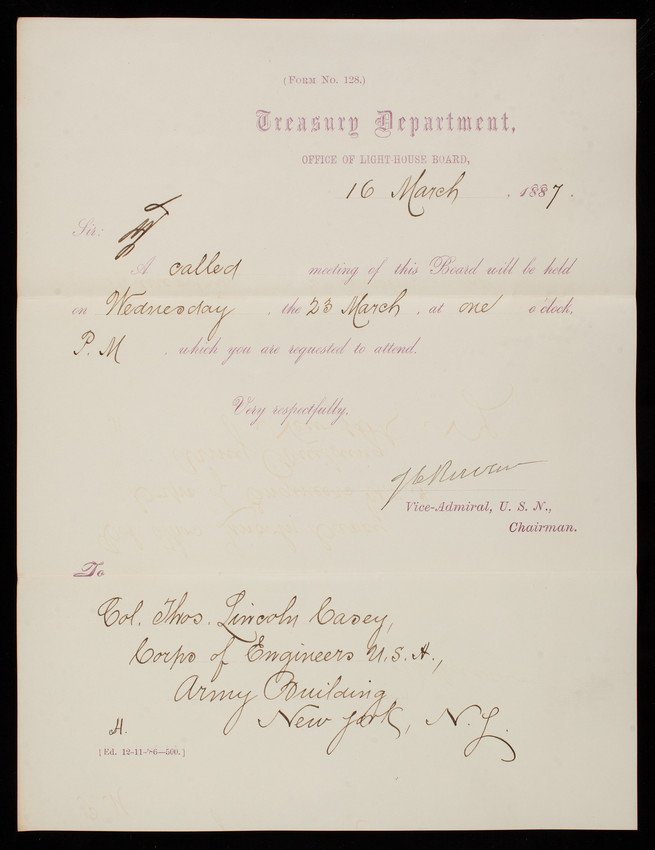 (Form No. 128.)
Treasury Department,
OFFICE OF LIGHT-HOUSE BOARD,
16 March, 1887.
Sir:
A called meeting of this Board will be held
on Wednesday, the 23 March, at one o'clock,
P. M, which you are requested to attend.
Very respectfully,
Vice-Admiral, U. S. N.,
Chairman.
To
Col. Thos. Lincoln Casey,
Corps of Engineers U.S.A.,
Army Building,
New York, N.Y.
H.
[Ed. 12-11-'86—500.]